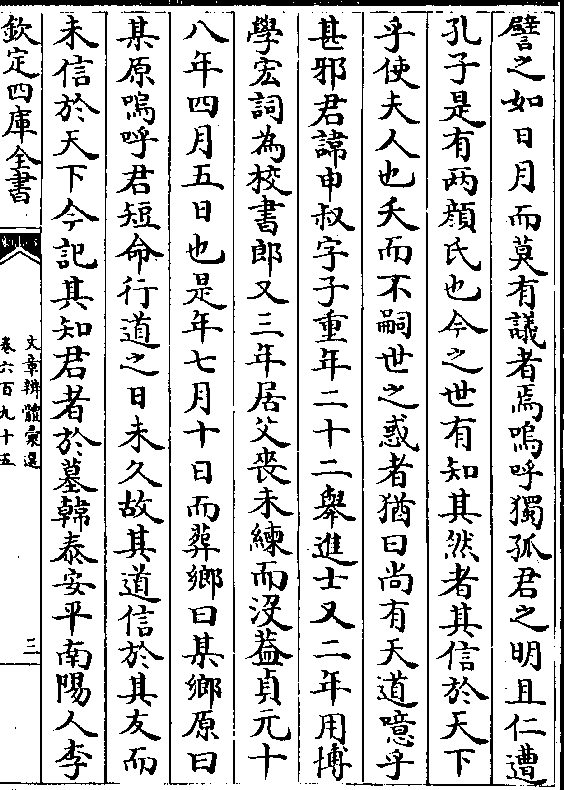 譬之如日月而莫有議者焉嗚呼獨孤君之明且仁遭
孔子是有兩顔氏也今之世有知其然者其信於天下
乎使夫人也夭而不嗣世之惑者猶曰尚有天道噫乎
甚邪君諱申叔字子重年二十二舉進士又二年用博
學宏詞為校書郎又三年居父喪未練而沒葢貞元十
八年四月五日也是年七月十日而葬鄉曰某鄉原曰
某原嗚呼君短命行道之日未久故其道信於其友而
未信於天下今記其知君者於墓韓泰安平南陽人李
欽定四庫全書
文章辨體彙選
卷六百九十五
三